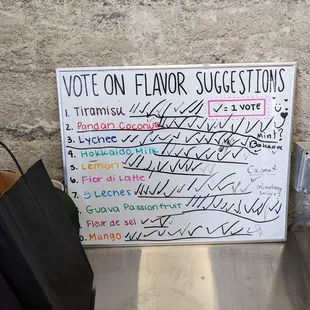 VOTE ON FLAVOR SUGGESTIONS
1. Tiramisu ✓ = 1 VOTE
2. Pandan Coconut
Mint?
3. Lychee
Banana
4. Hokkaido Milk
5. Lemon
Coconut
6. Fior di Latte
7. 5 Leches
Guava Passionfruit
Fleur de sel
0. Mungo